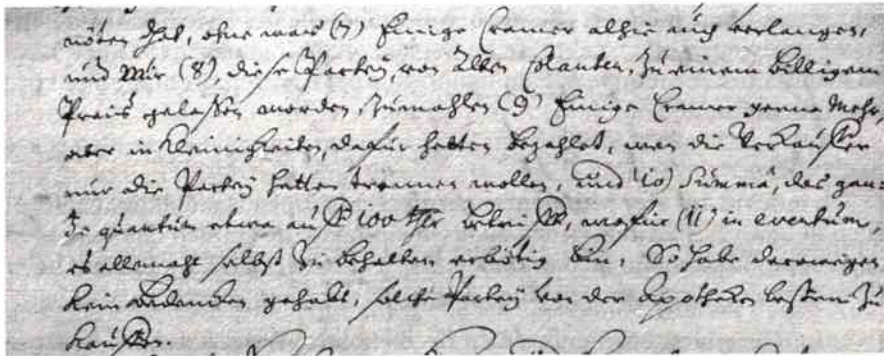 nöten hat, ohne was (7) Einige Cramer alhie auch verlangen,
und Mir (8), diese Partey, von Alten zu einem billigem
Preis gelassen worden, zumahlen (9) Einige Cramer gerne Mehr,
aber in Kleinigkeiten, dafür hetten bezahlet, wan die Verkauffer
nur die Partey hetten trennen wollen, und 10) Summa, das gan=
ze quantum etwa auff 100 thlr belaufft, wofür (11) in eventum,
es allemahl selbst zu behalten erbötig bin, So habe derowegen
kein bedencken gehabt, solche Partey von der Apotheken zu
kauffen.